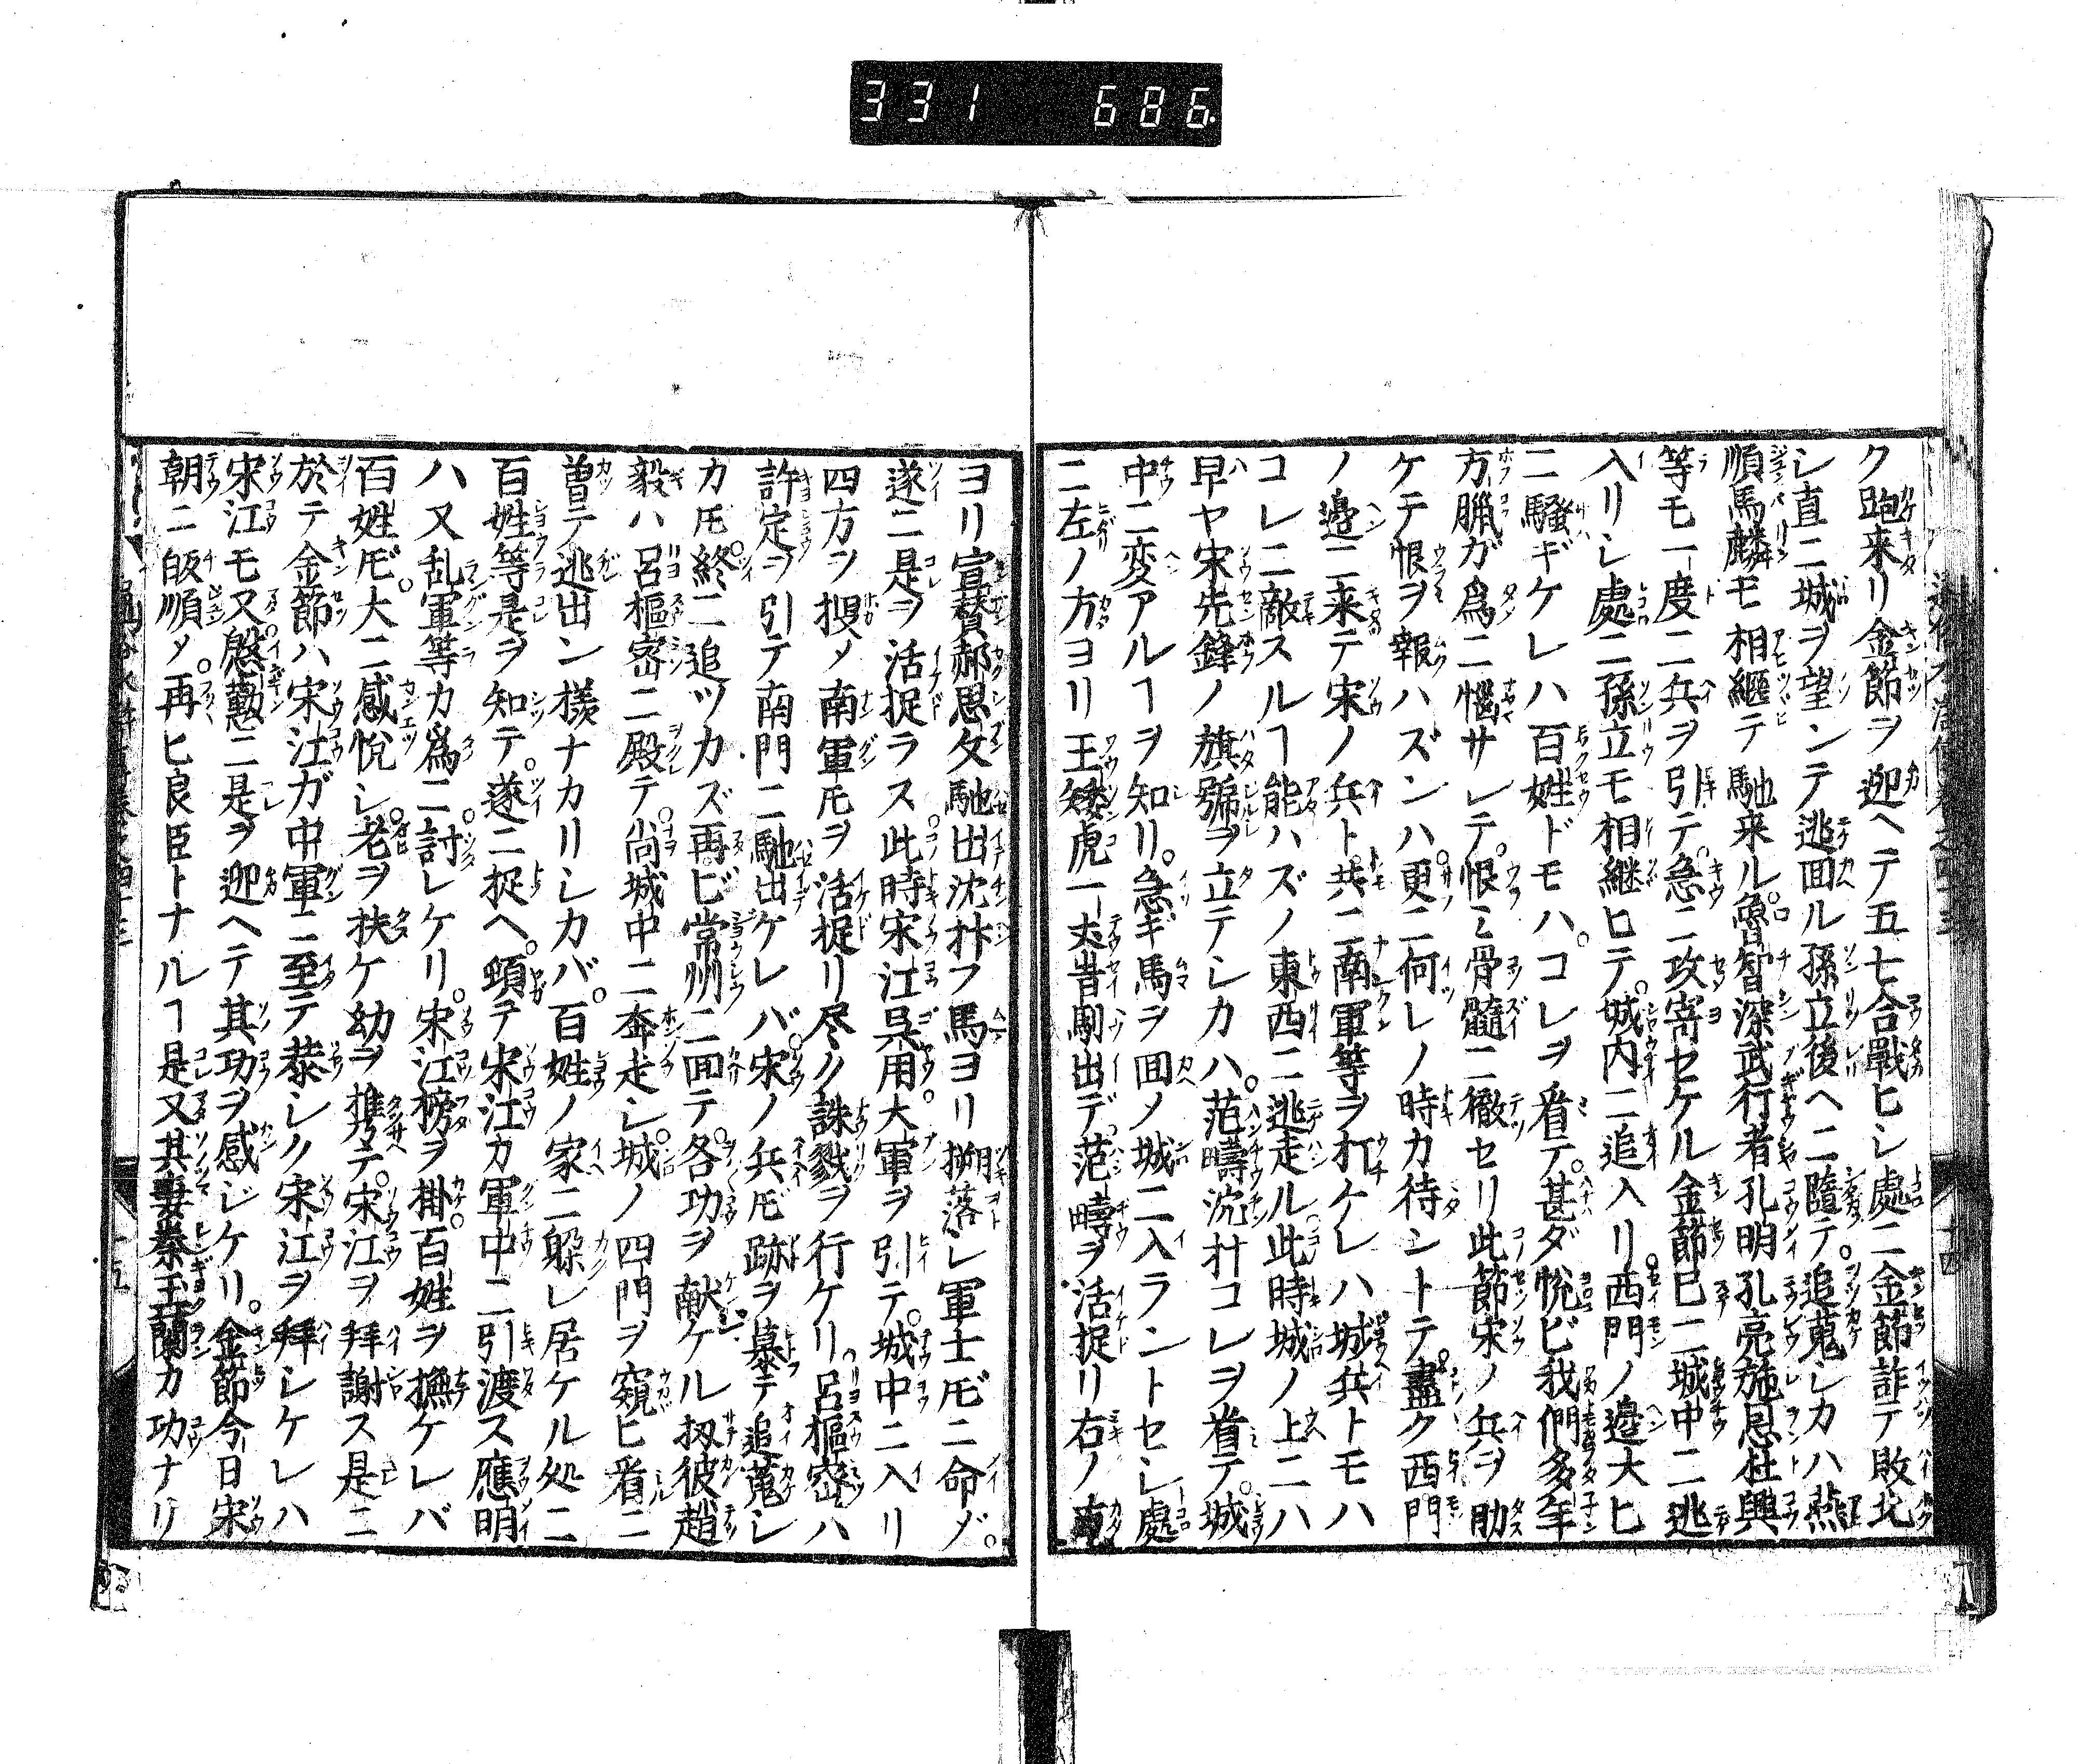 331 686
ク跑来リ金節ヲ迎ヘテ五七合戰ヒシ處ニ金節詐テ敗北
シ直ニ城ヲ望ンテ逃囬ル孫立後ヘニ隨テ。追蒐シカハ燕
順馬麟モ相繼テ馳来ル。魯智深武行者孔明孔亮施恩杜興
等モ一度ニ兵ヲ引テ。急ニ攻寄セケル金節已ニ城中ニ逃
入リシ處ニ孫立モ相継ヒテ。城内ニ追入リ。西門ノ邉大ヒ
ニ騷ギケレハ百姓ドモハ。コレヲ看テ。甚ダ悦ビ我們多年
方臘ガ爲ニ惱サレテ。恨ミ骨髓ニ徹セリ此節宋ノ兵ヲ助
ケテ恨ヲ報ハズンハ。更ニ何レノ時カ待ントテ。盡ク西門
ノ邉ニ来テ宋ノ兵ト共ニ南軍等ヲ打ケレハ城兵トモハ
コレニ敵スルヿ能ハズノ東西ニ逃走ル此時城ノ上ニハ
早ヤ宋先鋒ノ旗號ヲ立テシカハ。范疇沈抃コレヲ着テ。城
中ニ変アルヿヲ知リ。急ギ馬ヲ囬ノ城ニ入ラントセシ處
ニ左ノ方ヨリ王矮虎一丈青馴出デ范疇ヲ活捉リ右ノ方
ヨリ宣賛郝思文馳出沈抃フ馬ヨリ搠落シ軍士𪜈ニ命ジ。
遂ニ是ヲ活捉ラス此時宋江呉用大軍ヲ引テ。城中ニ入リ
四方ヲ捜メ南軍𪜈ヲ活捉リ尽ク誅戮ヲ行ケリ。呂樞密ハ
許定ヲ引テ南門ニ馳出ケレバ。宋ノ兵𪜈跡ヲ慕テ追蒐シ
カ𪜈。終ニ追ツカズ再ビ常州ニ囬テ。各功ヲ献ケル扨彼趙
毅ハ呂樞密ニ殿テ。尚城中ニ奔走シ。城ノ四門ヲ窺ヒ看ニ
曽テ逃出ン様ナカリシカバ。百姓ノ家ニ躱レ居ケル処ニ
百姓等是ヲ知テ。遂ニ捉ヘ。頓テ宋江カ軍中ニ引渡ス應明
ハ又乱軍等カ爲ニ。討レケリ。宋江榜ヲ掛。百姓ヲ撫ケレバ
百姓𪜈。大ニ感悦シ。老ヲ扶ケ幼ヲ携テ。宋江ヲ拜謝ス是ニ
於テ金節ハ宋江ガ中軍ニ至テ恭シク宋江ヲ拜シケレハ
宋江モ又慇懃ニ是ヲ迎ヘテ其功ヲ感ジケリ。金節今日宋
朝ニ皈順メ。再ヒ良臣トナルヿ是又其妻秦玉蘭カ功ナリ